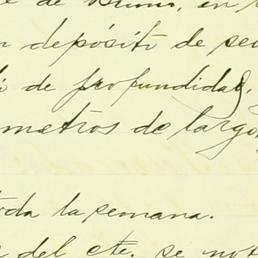 de Bruno, en
depósiti de se
de profundidad,
metros de largo,
toda la semana.
del cte. se not